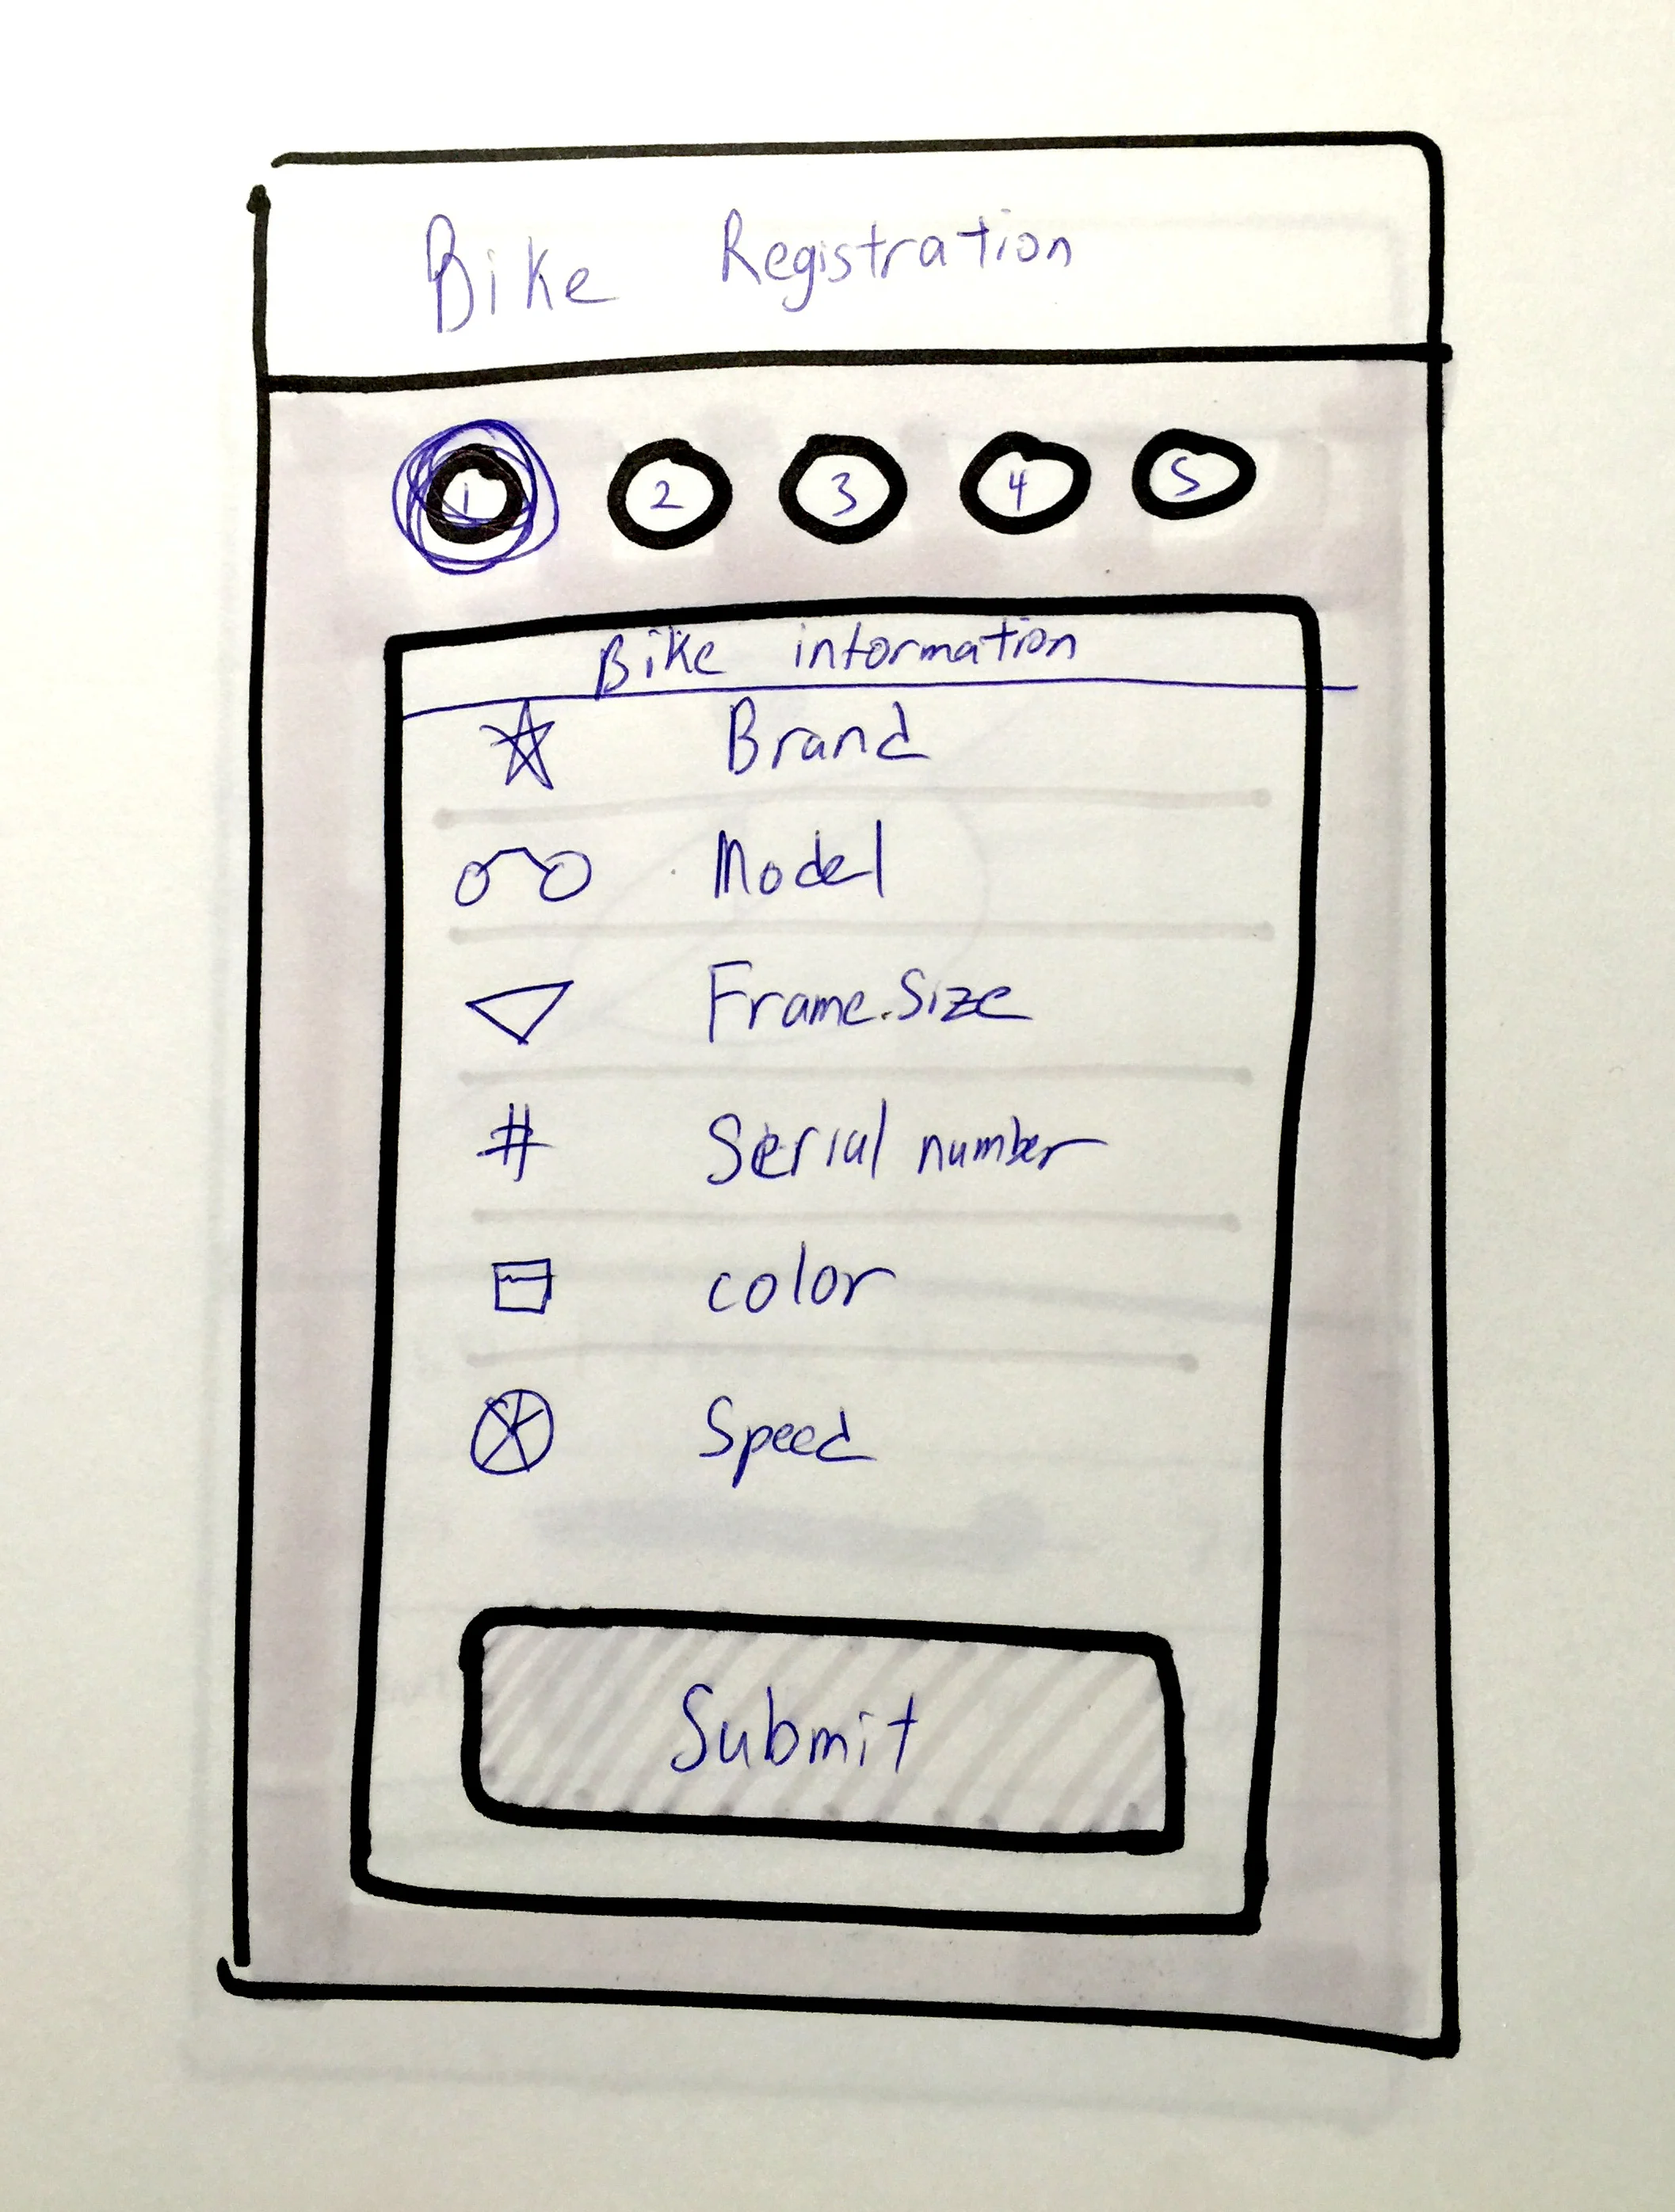 Bike Registration
1 2 3 4 5
Bike information
Brand
Model
Frame.Size
# Serial number
color
Speed
Submit